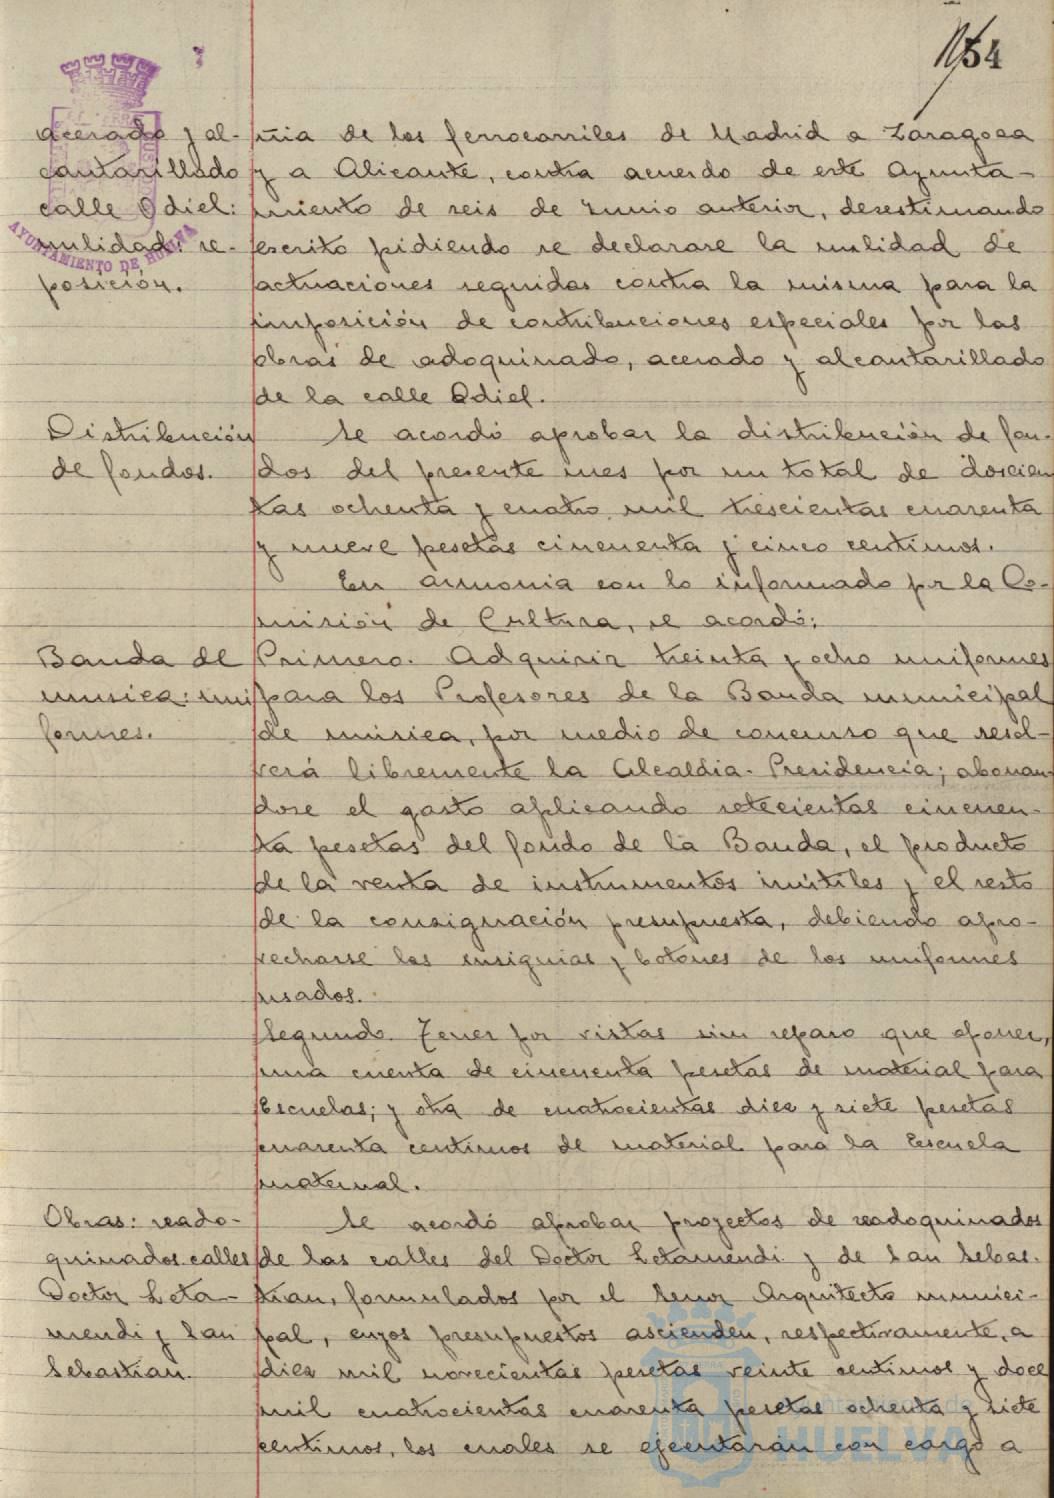 154
acerado y al-
cantarillado
calle Odiel:
nulidad: re-
posición.
AYUNTAMIENTO DE HUELVA
ñia de los ferrocarriles de Madrid a Zaragoza
y a Alicante, contra acuerdo de este Ayunta-
miento de seis de Junio anterior, desestimando
escrito pidiendo se declarase la nulidad de
actuaciones seguidas contra la misma para la
imposición de contribuciones especiales por las
obras de adoquinado, acerado y alcantarillado
de la calle Odiel.
Distribución
de fondos.
Se acordó aprobar la distribución de fon-
dos del presente mes por un total de doscien
tas ochenta y cuatro mil trescientas cuarenta
y nueve pesetas cincuenta y cinco centimos.
En armonia con lo informado por la Co-
misión de Cultura, se acordó:
Banda de
musica: uni
formes.
Primero. Adquirir treinta y ocho uniformes
para los Profesores de la Banda municipal
de música, por medio de concurso que resol-
verá libremente la Alcaldia-Presidencia; abonan-
dose el gasto aplicando setecientas cincuen-
ta pesetas del fondo de la Banda, el producto
de la venta de instrumentos inútiles y el resto
de la consignación presupuesta, debiendo apro-
vecharse las insignias y botones de los uniformes
usados.
Segundo. Tener por vistas sin reparo que oponer,
una cuenta de cincuenta pesetas de material para
Escuelas; y otra de cuatrocientas diez y siete pesetas
cuarenta centimos de material para la Escuela
maternal.
Obras: reado-
quinados calles
Doctor Leta-
mendi y San
Sebastian.
Se acordó aprobar proyectos de readoquinados
de las calles del Doctor Letamendi y de San Sebas-
tian, formulados por el Señor Arquitecto munici-
pal, cuyos presupuestos ascienden, respectivamente, a
diez mil novecientas pesetas veinte centimos y doce
mil cuatrocientas cuarenta pesetas ochenta y siete
centimos, los cuales se ejecutarán con cargo a
HUELVA